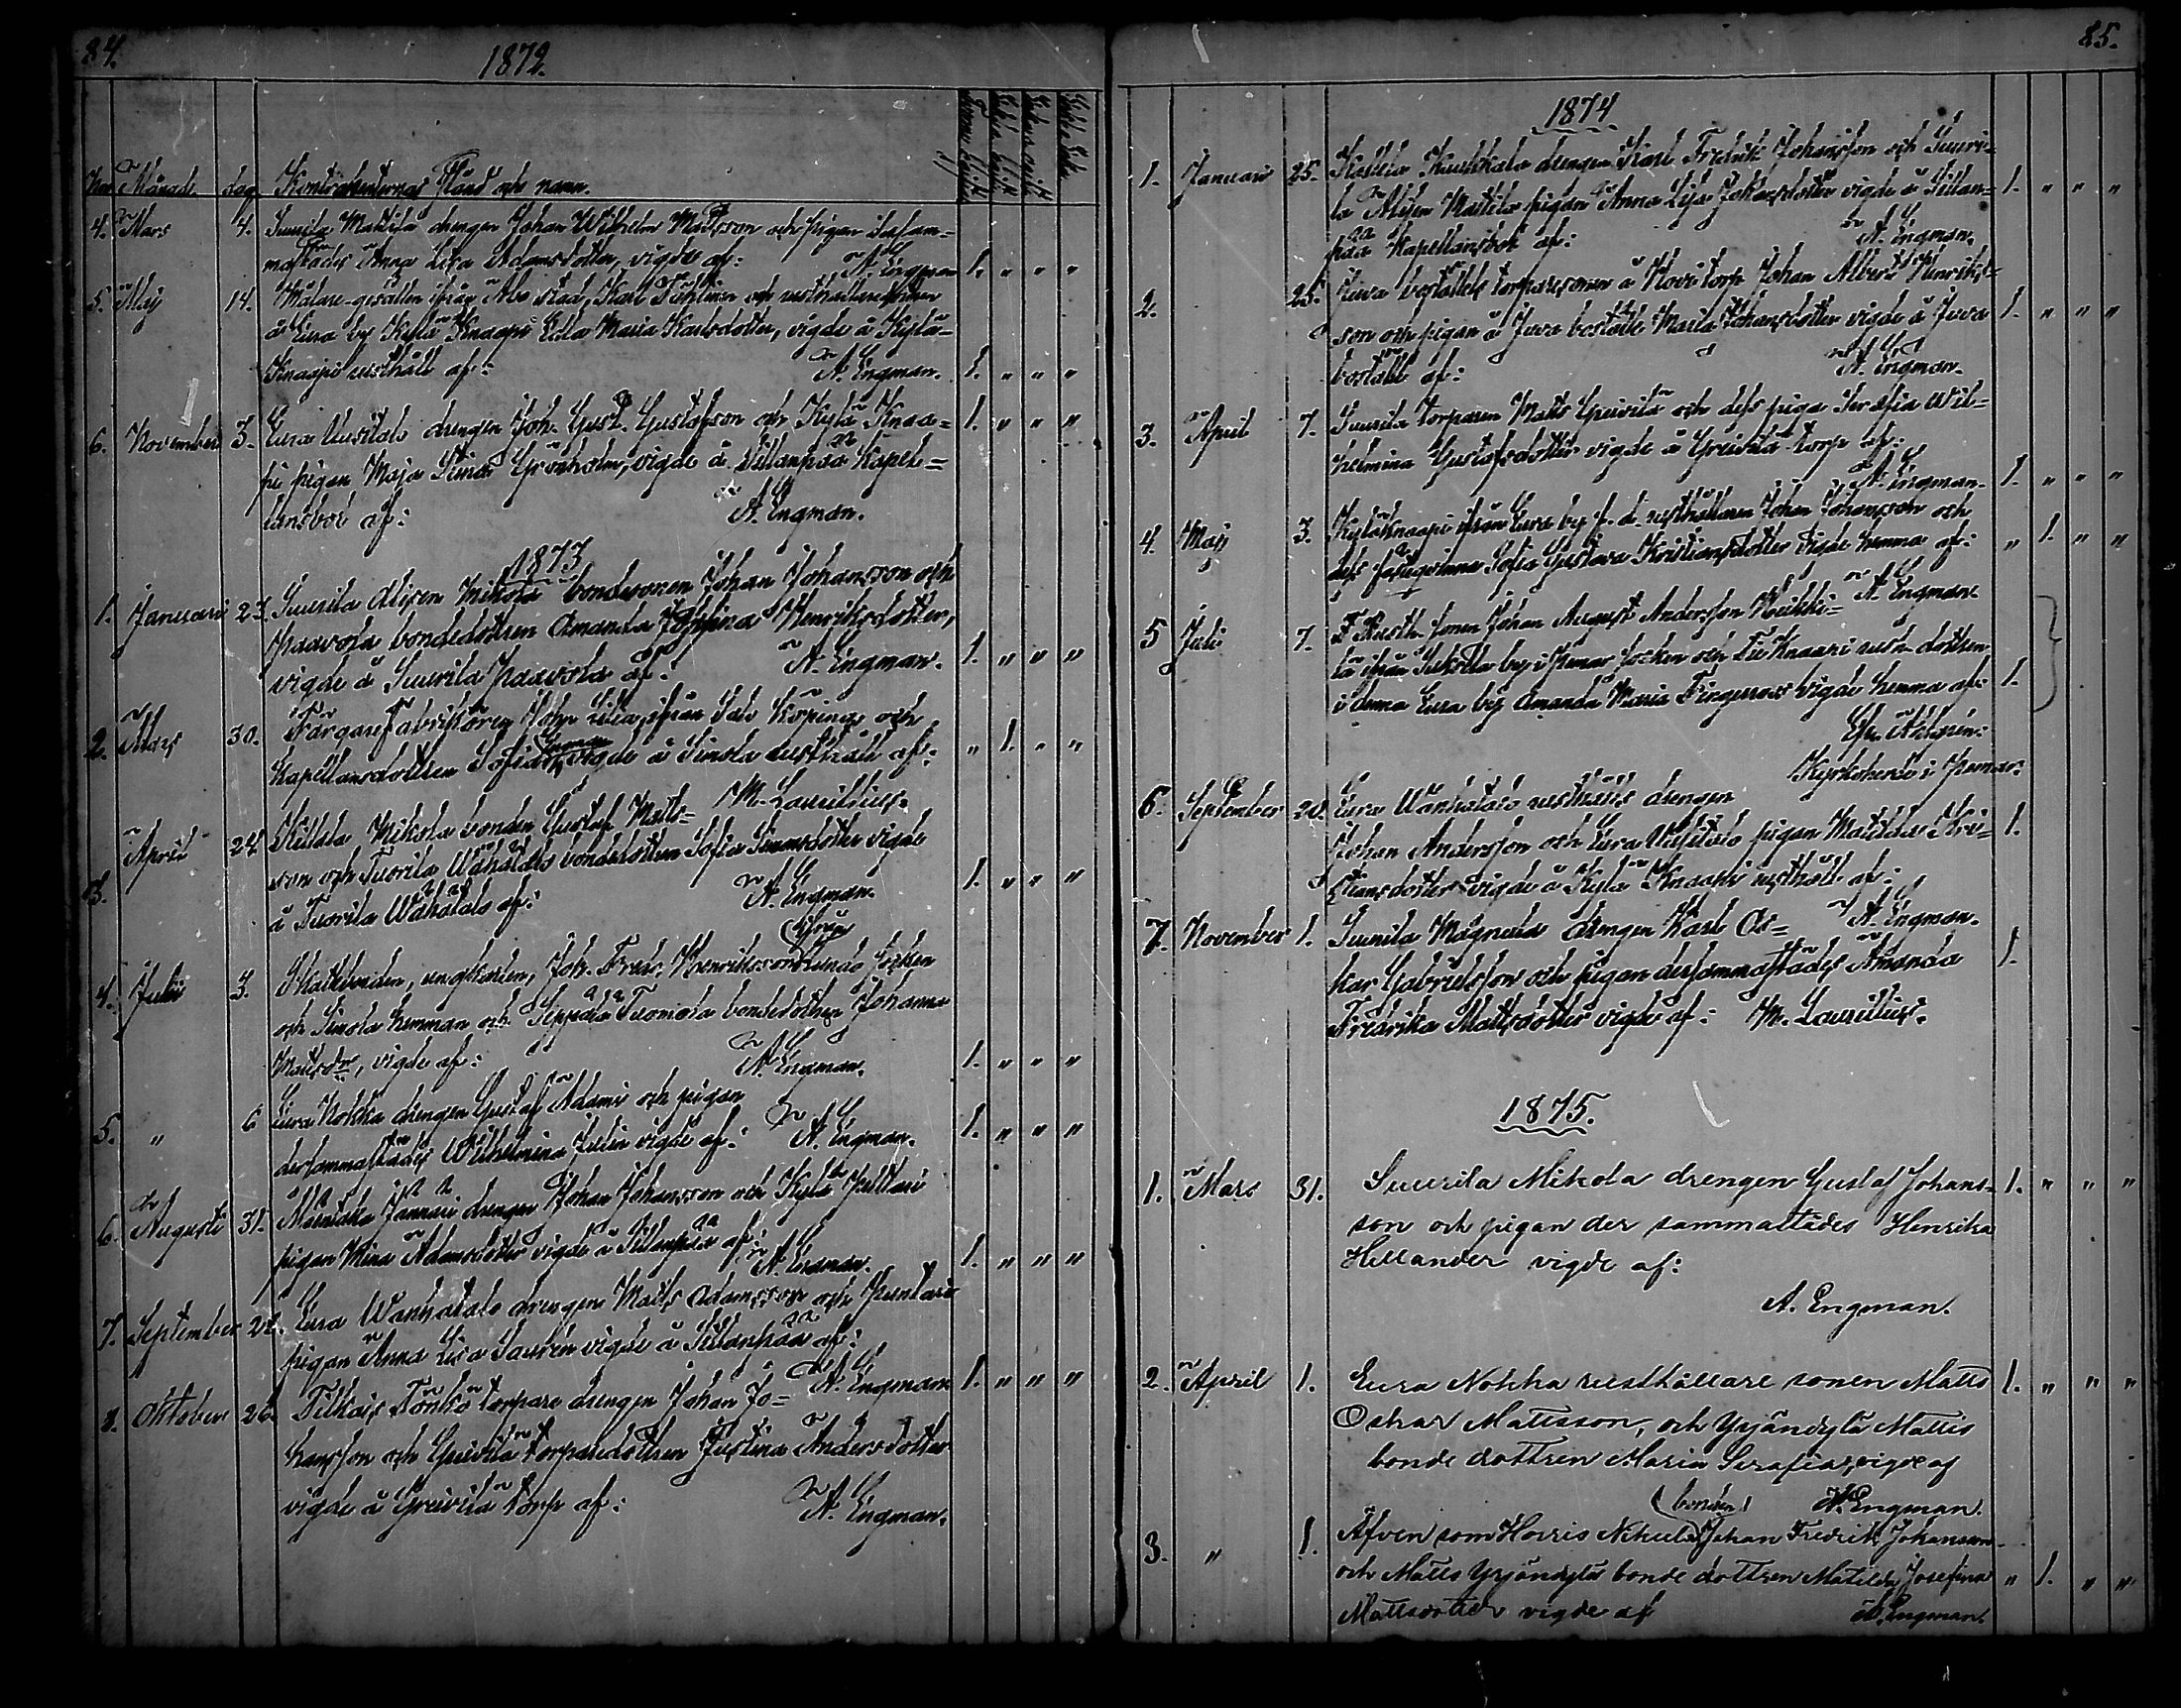 84.
1872.
N:ro Månad. dag. Kontrahenternas Stånd och namn.
4. Mars 4. Suurila Mattila drengen Johan Wilhelm Mattsson och pigan dersam-
mastädes Anna Lisa Adamsdotter, vigde af: A. Engman 1. " " "
5. Maj 14. Målare-gesällen ifrån Åbo stad, Karl
å Eura by Kylä Knaapi Maria Karlsdotter, vigde å Kylä-
Knaapi rusthåll af: A. Engman. 1. " " "
6. November 3. Eura Uusitalo drengen Joh. Gust. Gustafsson och Kylä Knaa- 1. " " "
pi pigan Maja Stina Grönholm, vigde å Sillanpää Kapel-
lansbol af: A. Engman.
1873
1. Januari 23. Suurila Alisen Mikola bondesonen Johan Johansson och
Paavola bondedottren Amanda Josefina Henriksdotter,
vigde å Suurila Paavola af: A. Engman. 1. " " "
2. Mars 30. Färgarefabrikören ifrån Salo Köping och
Kapellansdottren Sofia Engman vigde å Simola rusthåll af: " 1. " "
M. Laurellius.
3. April 24. Mikola bonden Gustaf Matts-
son och Tuorila Wähätalo bondedottren Sofia Simonsdotter vigde
å Tuorila Wähätalo af: A. Engman. 1. " " "
4. Julii 3. Skattbonden, ungkarlen, Joh. Fredr. Henriksson socken
och Simola hemman och Seppälä Tuomola bondedottren Johanna
Matsdr, vigde af: A. Engman. 1. " " "
5. " 6 Eura Nokka drengen Gustaf Adami och pigan
dersammastädes Wilhelmina Julin vigde af: A. Engman. 1. " " "
6. Augusti 31. Jaanari drengen Johan Johansson och Kylä
pigan Mina Adamsdotter vigde å Sillanpää af: A. Engman. 1. " " "
7. September 28. Eura Wanhatalo drengen Matts Adamsson och Puntari
pigan Anna Lisa Saurén vigde å Sillanpää af:
A. Engman 1. " " "
8. Oktober 26. Torpare drengen Johan Jo-
hansson och Greivilä torparedottren Justina Andersdotter
vigde å Greivilä torp af: A. Engman.
85.
1874
1. Januari 25. Kuuskala drengen Karl Fredrik Johansson och Suuri-
la Alisen Mattila pigan Anna Lisa Johansdotter vigde å Sillan- 1. " " "
pää Kapellansbol af: A. Engman.
2. 25. Juva boställets torparesonen å torp Johan Albert Henriks-
son och pigan å Juva boställe Maria Johansdotter vigde å Juva 1. " " "
boställe af: A. Engman.
3. April 7. Suurila Torparen Matts Greivilä och dess piga Serafia Wil-
helmina Gustafsdotter vigde å Greivilä torp af:
A. Engman. 1. " " "
4. Maj 3. Kyläknaapi ifrån Eura by f. d. rusthållaren Johan Johansson och
dess Sofia Gustava Kristiansdotter vigde hemma af: " 1. " "
A. Engman.
5 Juli 7. Rusth. sonen Johan August Andersson Heikki-
lä ifrån by i Pemar Socken och Knaapi rusth. dottren
i denna Eura by Amanda Maria Fingerroos vigde hemma af: 1.
Kyrkoherde i Pemar.
6. September 20. Eura Wanhatalo rusthålls drengen
Johan Andersson och Eura Uusitalo pigan Matilda Kri- 1.
stiansdotter vigde å Kylä Knaapi rusthåll af:
A. Engman.
7. November 1. Suurila Magnula drengen Karl Os-
kar Gabrielsson och pigan dersammastädes Amanda 1.
Fredrika Mattsdotter vigde af: M. Laurellius.
1875.
1. Mars 31. Suurila Mikola drengen Gustaf Johans- 1. " " "
son och pigan der sammastädes Henrika
Hellander vigde af:
A. Engman.
2. April 1. Eura Nokka rusthållare sonen Matts 1. " " "
Oskar Mattsson, och Yrjänkylä Mattis
bonde dottren Maria Serafia, vigde af
A. Engman.
3. " 1. Äfven som Horris Nikula (bonden) Johan Fredrik Johansson
och Matts Yrjänkylä bonde dottren Matilda Josefina " 1. " "
Mattsdotter vigde af A. Engman.